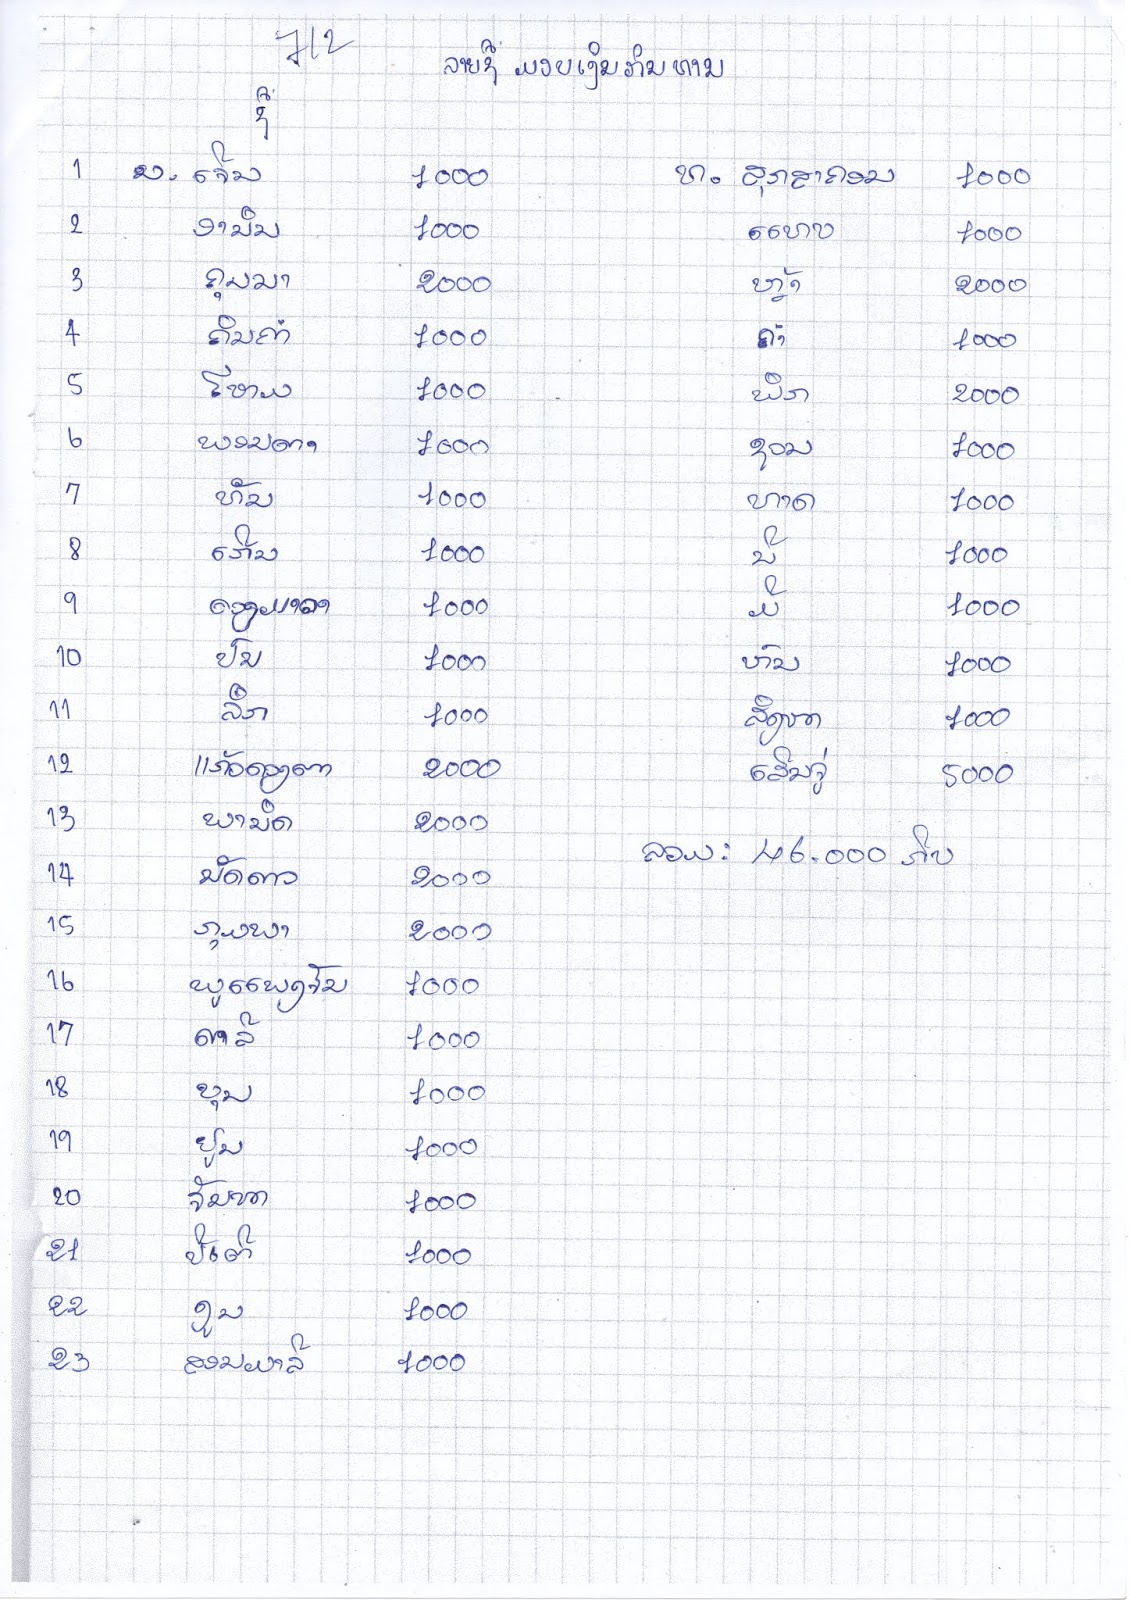 ມ/2
ລາຍຊື່ ມອບເງິນກິນທານ
ຊື່
1 ນ. ເຈີນ 1000 ທ. ສຸກສາຄອນ 1000
2 ອານິນ 1000 ແຫບ 1000
3 ຄຸນນາ 2000 ຫຼ້າ 2000
4 ຄິນຄຳ 1000 ຄຳ 1000
5 1000 ພິກ 2000
6 ພອນຕາ 1000 ຊວນ 1000
7 ຫັນ 1000 ຫາດ 1000
8 ເກີນ 1000 ນີ 1000
9 ດວງມາລາ 1000 ມີ 1000
10 ປິນ 1000 ຫົນ 1000
11 ລິກ 1000 1000
12 ແກ້ວດວງຕາ 2000 ເສີນຈູ່ 5000
13 ພານິດ 2000
ລວມ: 46.000 ກີບ
14 ນັດດາວ 2000
15 ກຸມພາ 2000
16 ພູແພງຈັນ 1000
17 ດາລີ 1000
18 ບຸນ 1000
19 ປູນ 1000
20 ຈັນຫາ 1000
21 1000
22 1000
23 ສອນມາລີ 1000